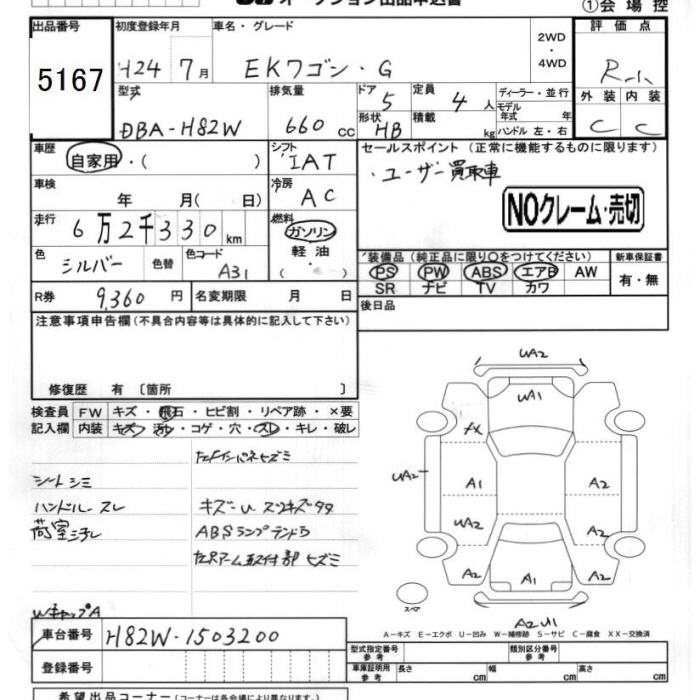 ①会場控
出品番号 初度登録年月 車名・グレード 評価点
5167 H24 7月 EKワゴン・G 2WD・4WD R-
型式 排気量 ドア 定員 ディーラー・並行 外装 内装
DBA-H82W 660 cc 5 4人 モデル年式 年 C C
形状 積載 HB kg ハンドル 左・右
車歴 シフト セールスポイント(正常に機能するものに限ります)
自家用・( ) IAT ・ユーザー買取車
車検 冷房
年 月( 日) AC NOクレーム・売切
走行 6万2千330km 燃料 ガソリン 軽油 ・
装備品(純正品に限り○をつけてください) 新車保証書
色 シルバー 色替 色コード A31 PS PW ABS エアB AW 有・無
SR ナビ TV カワ
R券 9,360円 名変期限 月 日 後日品
注意事項申告欄(不具合内容等は具体的に記入して下さい)
修復歴 有 〔箇所 〕
検査員記入欄 FW キズ・飛石・ヒビ割・リペア跡・×要
内装 キズ・汚れ・コゲ・穴・スレ・キレ・破レ
シートシミ
ハンドルースレ キズーU スリキズタタ
荷室ヨゴレ ABSランプテンドウ
右Rアーム取付部ヒズミ
WキャップA
車台番号 H82W-1503200
登録番号
希望出品コーナー(コーナーは各会場により異なります。)
UA2
UA1
fx
UA2 A1 A2
UA2 A2
A2 A1 A2
スペア
A2U1
A-キズ E-エクボ U-凹み W-補修跡 S-サビ C-腐食 XX-交換済
型式指定番号 参考 類別区分番号 参考
車庫証明用 参考 長さ cm 幅 cm 高さ cm